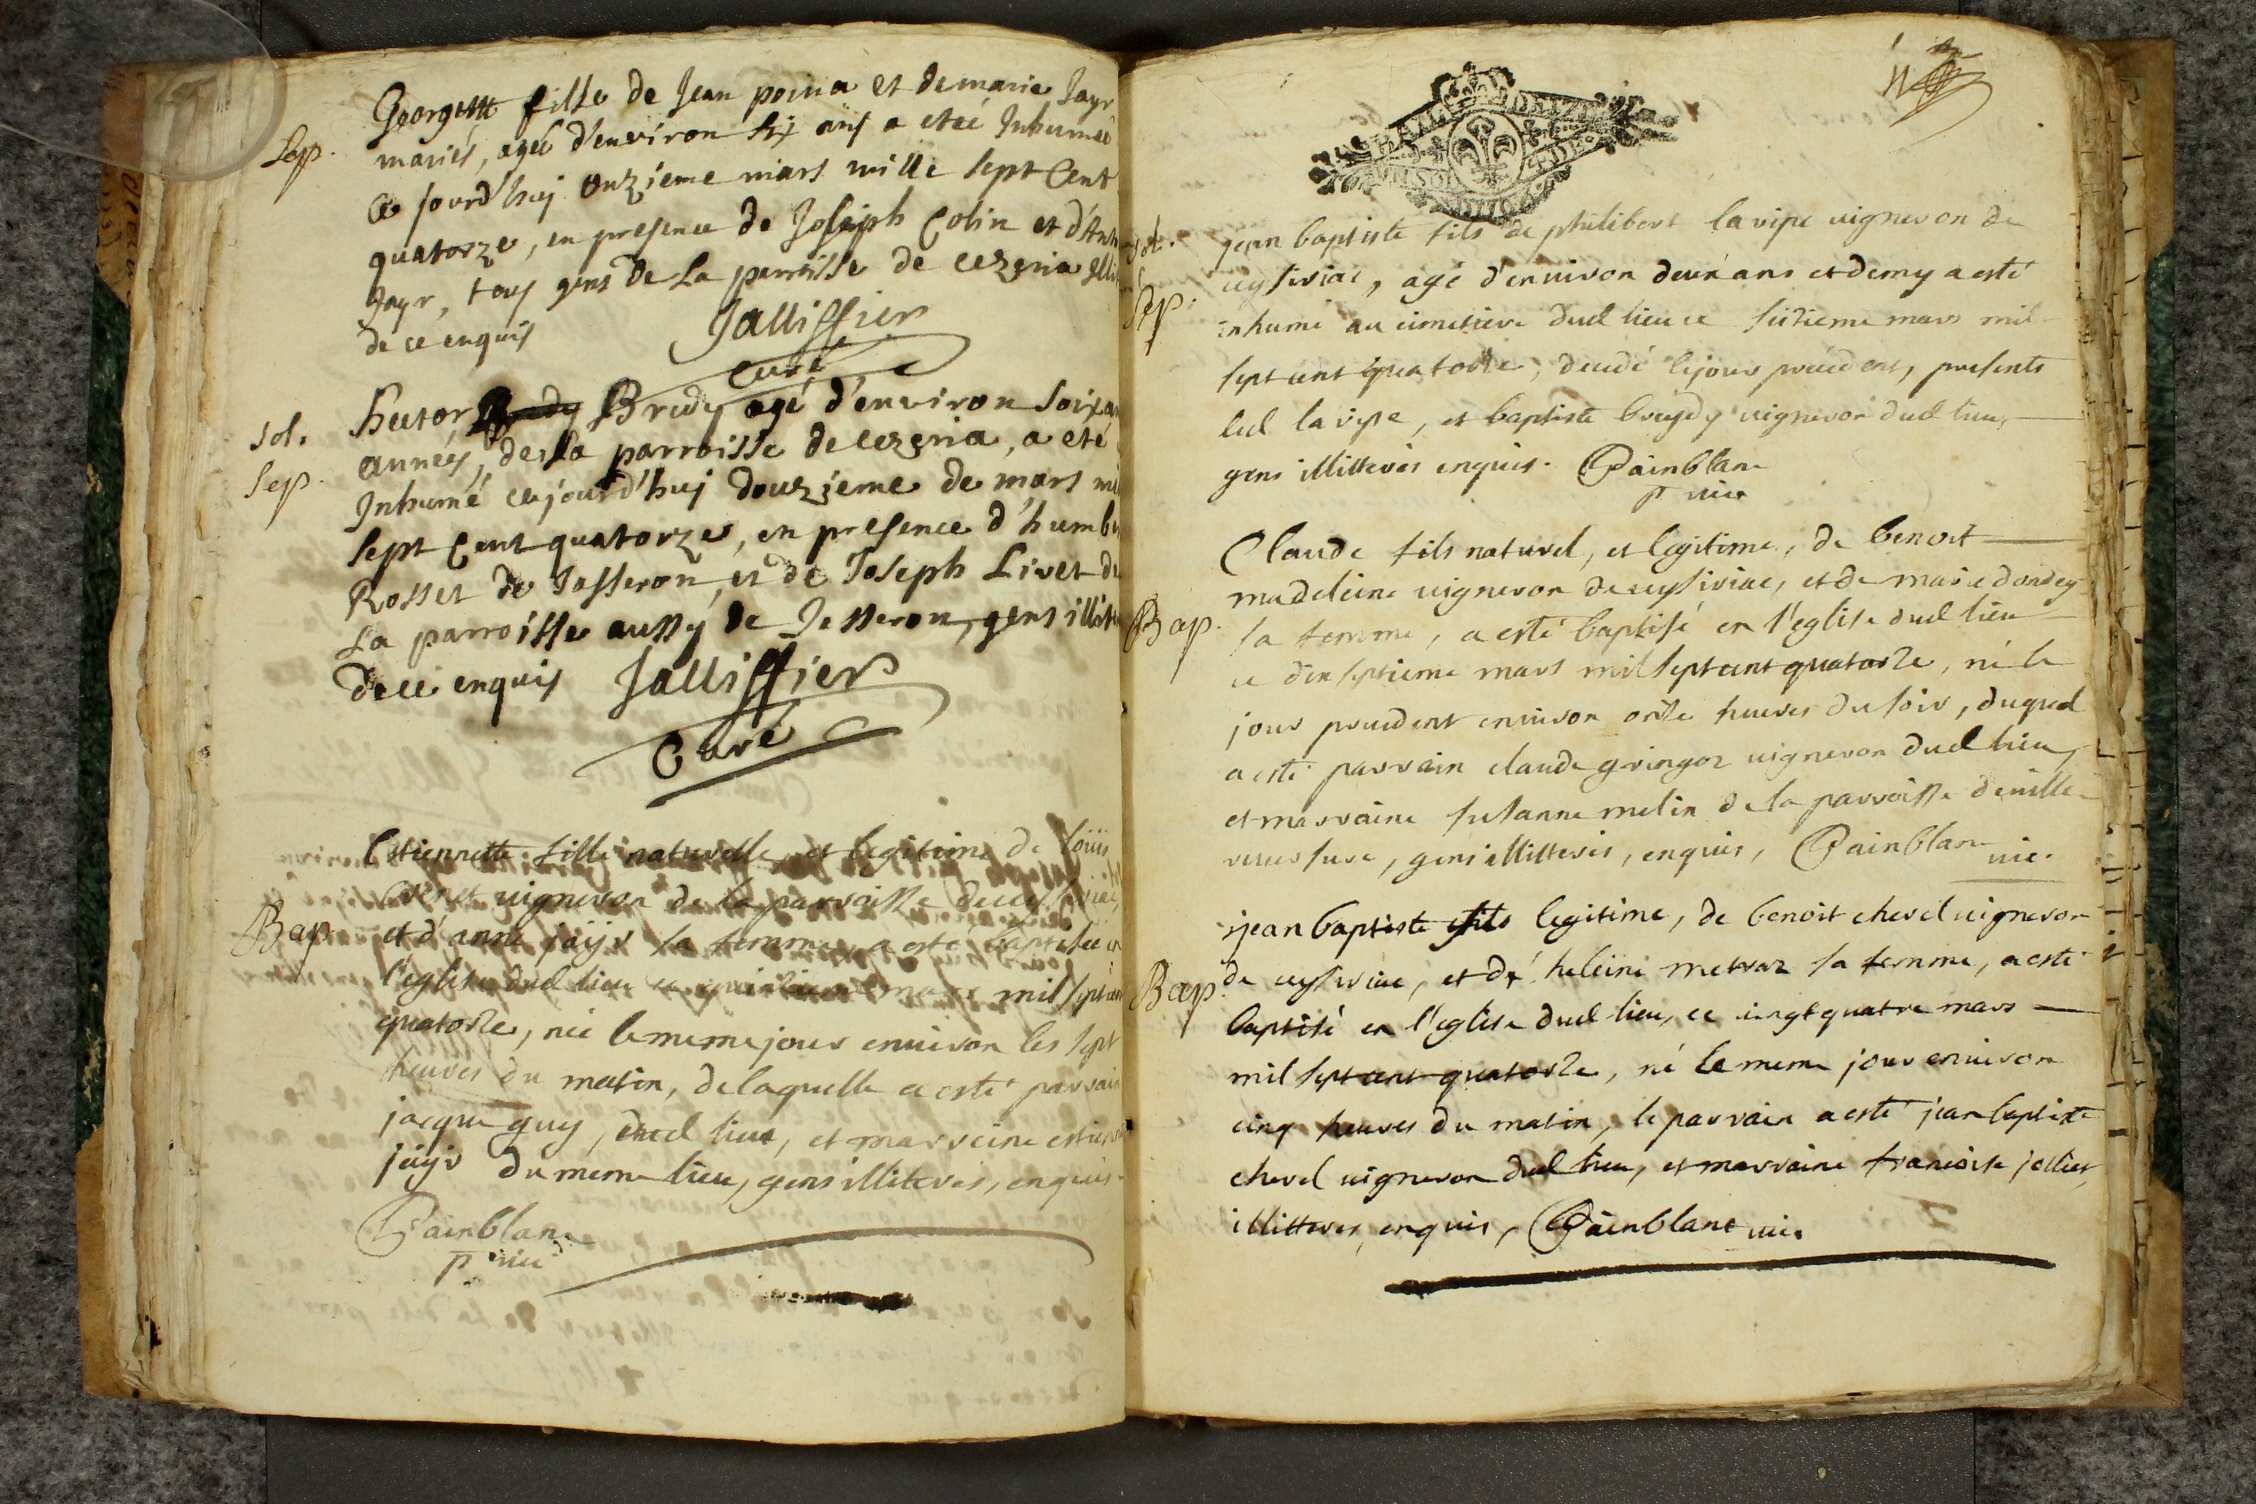 Georgette fille de Jean poina et de marie Jayr
Sep.
mariés, agée d'environ six ans a eteé Inhumeé
Ce jourd'huj onzieme mars mille sept Cent
quatorze, en presence de Joseph Colin et d'Ant
Jayr, tous gens de La parroisse de cezeria illi
de ce enquis Jallissier
Curé
hector Bredy agé d'environ soixan
sol.
années, de la parroisse de cezeria, a eté
Sep.
Inhumé ce jourd'huj douzieme de mars mi
sept Cent quatorze, en presence d'humb
Rosset de Jasseron, et de Joseph Livet de
La parroisse aussy de Jasseron, gens illit
de ce enquis Jallissier
Curé
Estiennette fille naturelle et legitime de loüis
vigneron de la parroisse de ceysiriac,
Bap.
et d'anne jayr sa femme, a esté baptisée en
l'eglise dud lieu ce mars mil sept cent
quatorze, née le meme jour environ les sept
heures du matin, de laquelle a esté parrain
jacque guy, dud lieu, et marreine estienn
jayr du meme lieu, gens illiterés, enquis.
Painblanc
p vic
jean baptiste fils de philibert lavipe vigneron de
sol.
Sep.
ceysiriac, agé d'environ deux ans et demy a esté
inhumé au cimetiere dud lieu ce seizieme mars mil
sept cent quatorze, decedé le jour precedent, presents
led lavipe, et baptiste breydy vigneron dud lieu,
gens illitterés enquis. Painblanc
p vic
Claude fils naturel, et legitime, de benoit
madeleine vigneron de ceysiriac, et de marie dondey
Bap.
sa femme, a esté baptisé en l'eglise dud lieu
ce dix septieme mars mil sept cent quatorze, né le
jour precedent environ onze heures du soir, duquel
a esté parrain claude gringoz vigneron dud lieu,
et marraine susanne melin de la parroisse de ville
reversure, gens illitterés, enquis, Painblanc vic.
jean baptiste fils legitime, de benoit chevel vigneron
de ceysiriac, et de heleine metraz sa femme, a esté
Bap.
baptisé en l'eglise dud lieu, ce vingt quatre mars
mil sept cent quatorze, né le meme jour environ
cinq heures du matin, le parrain a esté jean baptiste
chevel vigneron dud lieu, et marraine francoise jolliet,
illitteres, enquis, Painblanc vic.